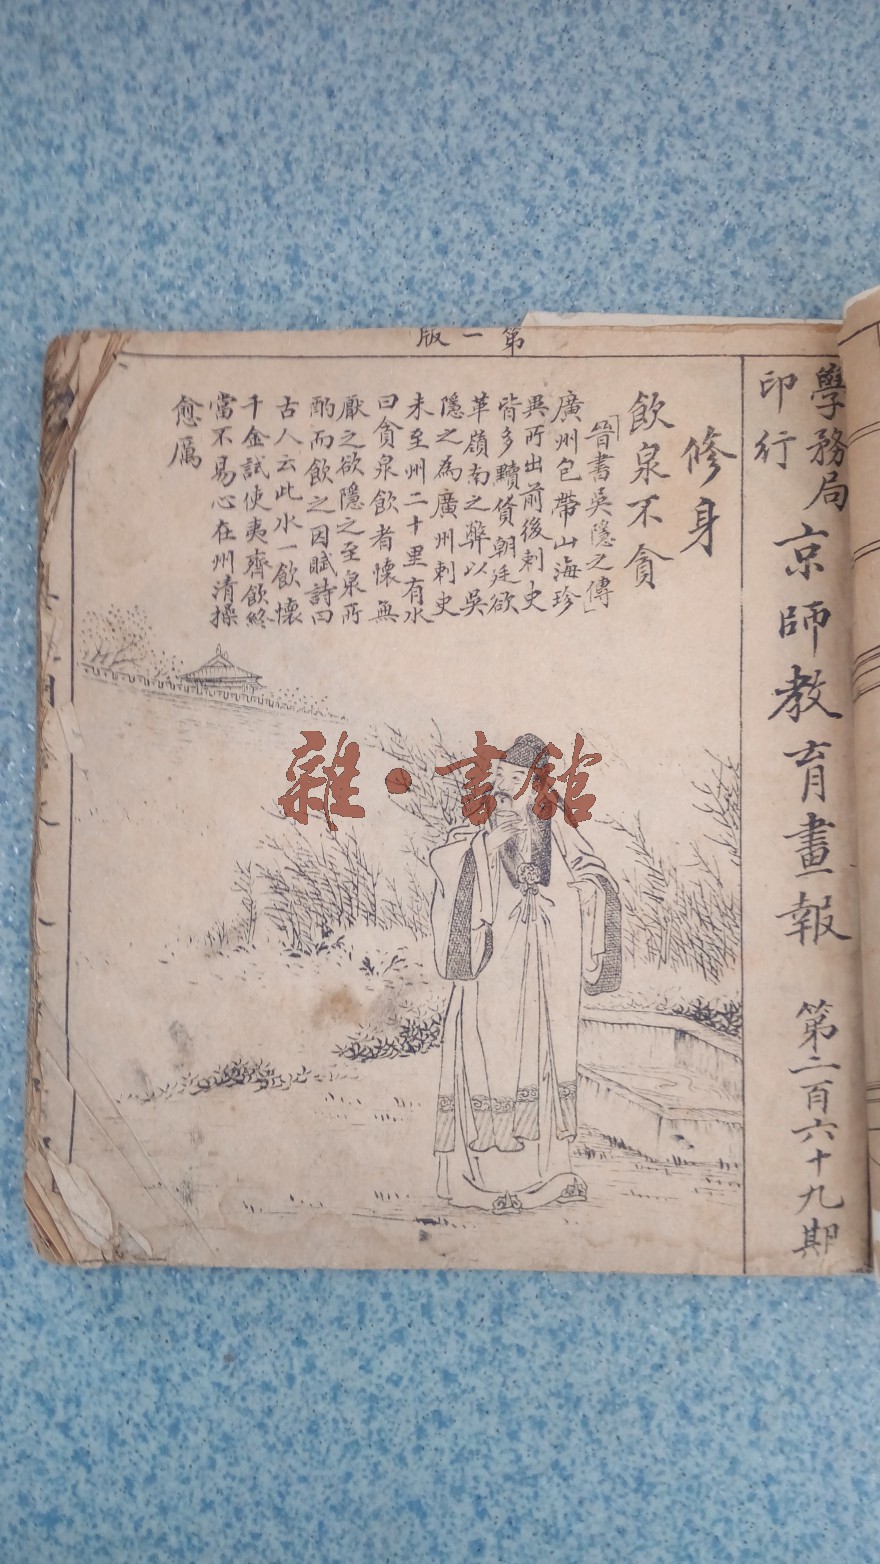 第一版
學務局
印行
京師教育畫報 第二百六十九期
修身
飲泉不貪
「晉書吳隱之傳」
廣州包帶山海珍
異所出前後刺史
皆多黷貨朝廷欲
革嶺南之弊以吳
隱之為廣州刺史
未至州二十里有水
曰貪泉飲者懷無
厭之欲隱之至泉所
酌而飲之因賦詩曰
古人云此水一飲懷
千金試使夷齊飲終
當不易心在州清操
愈厲
雜·書館